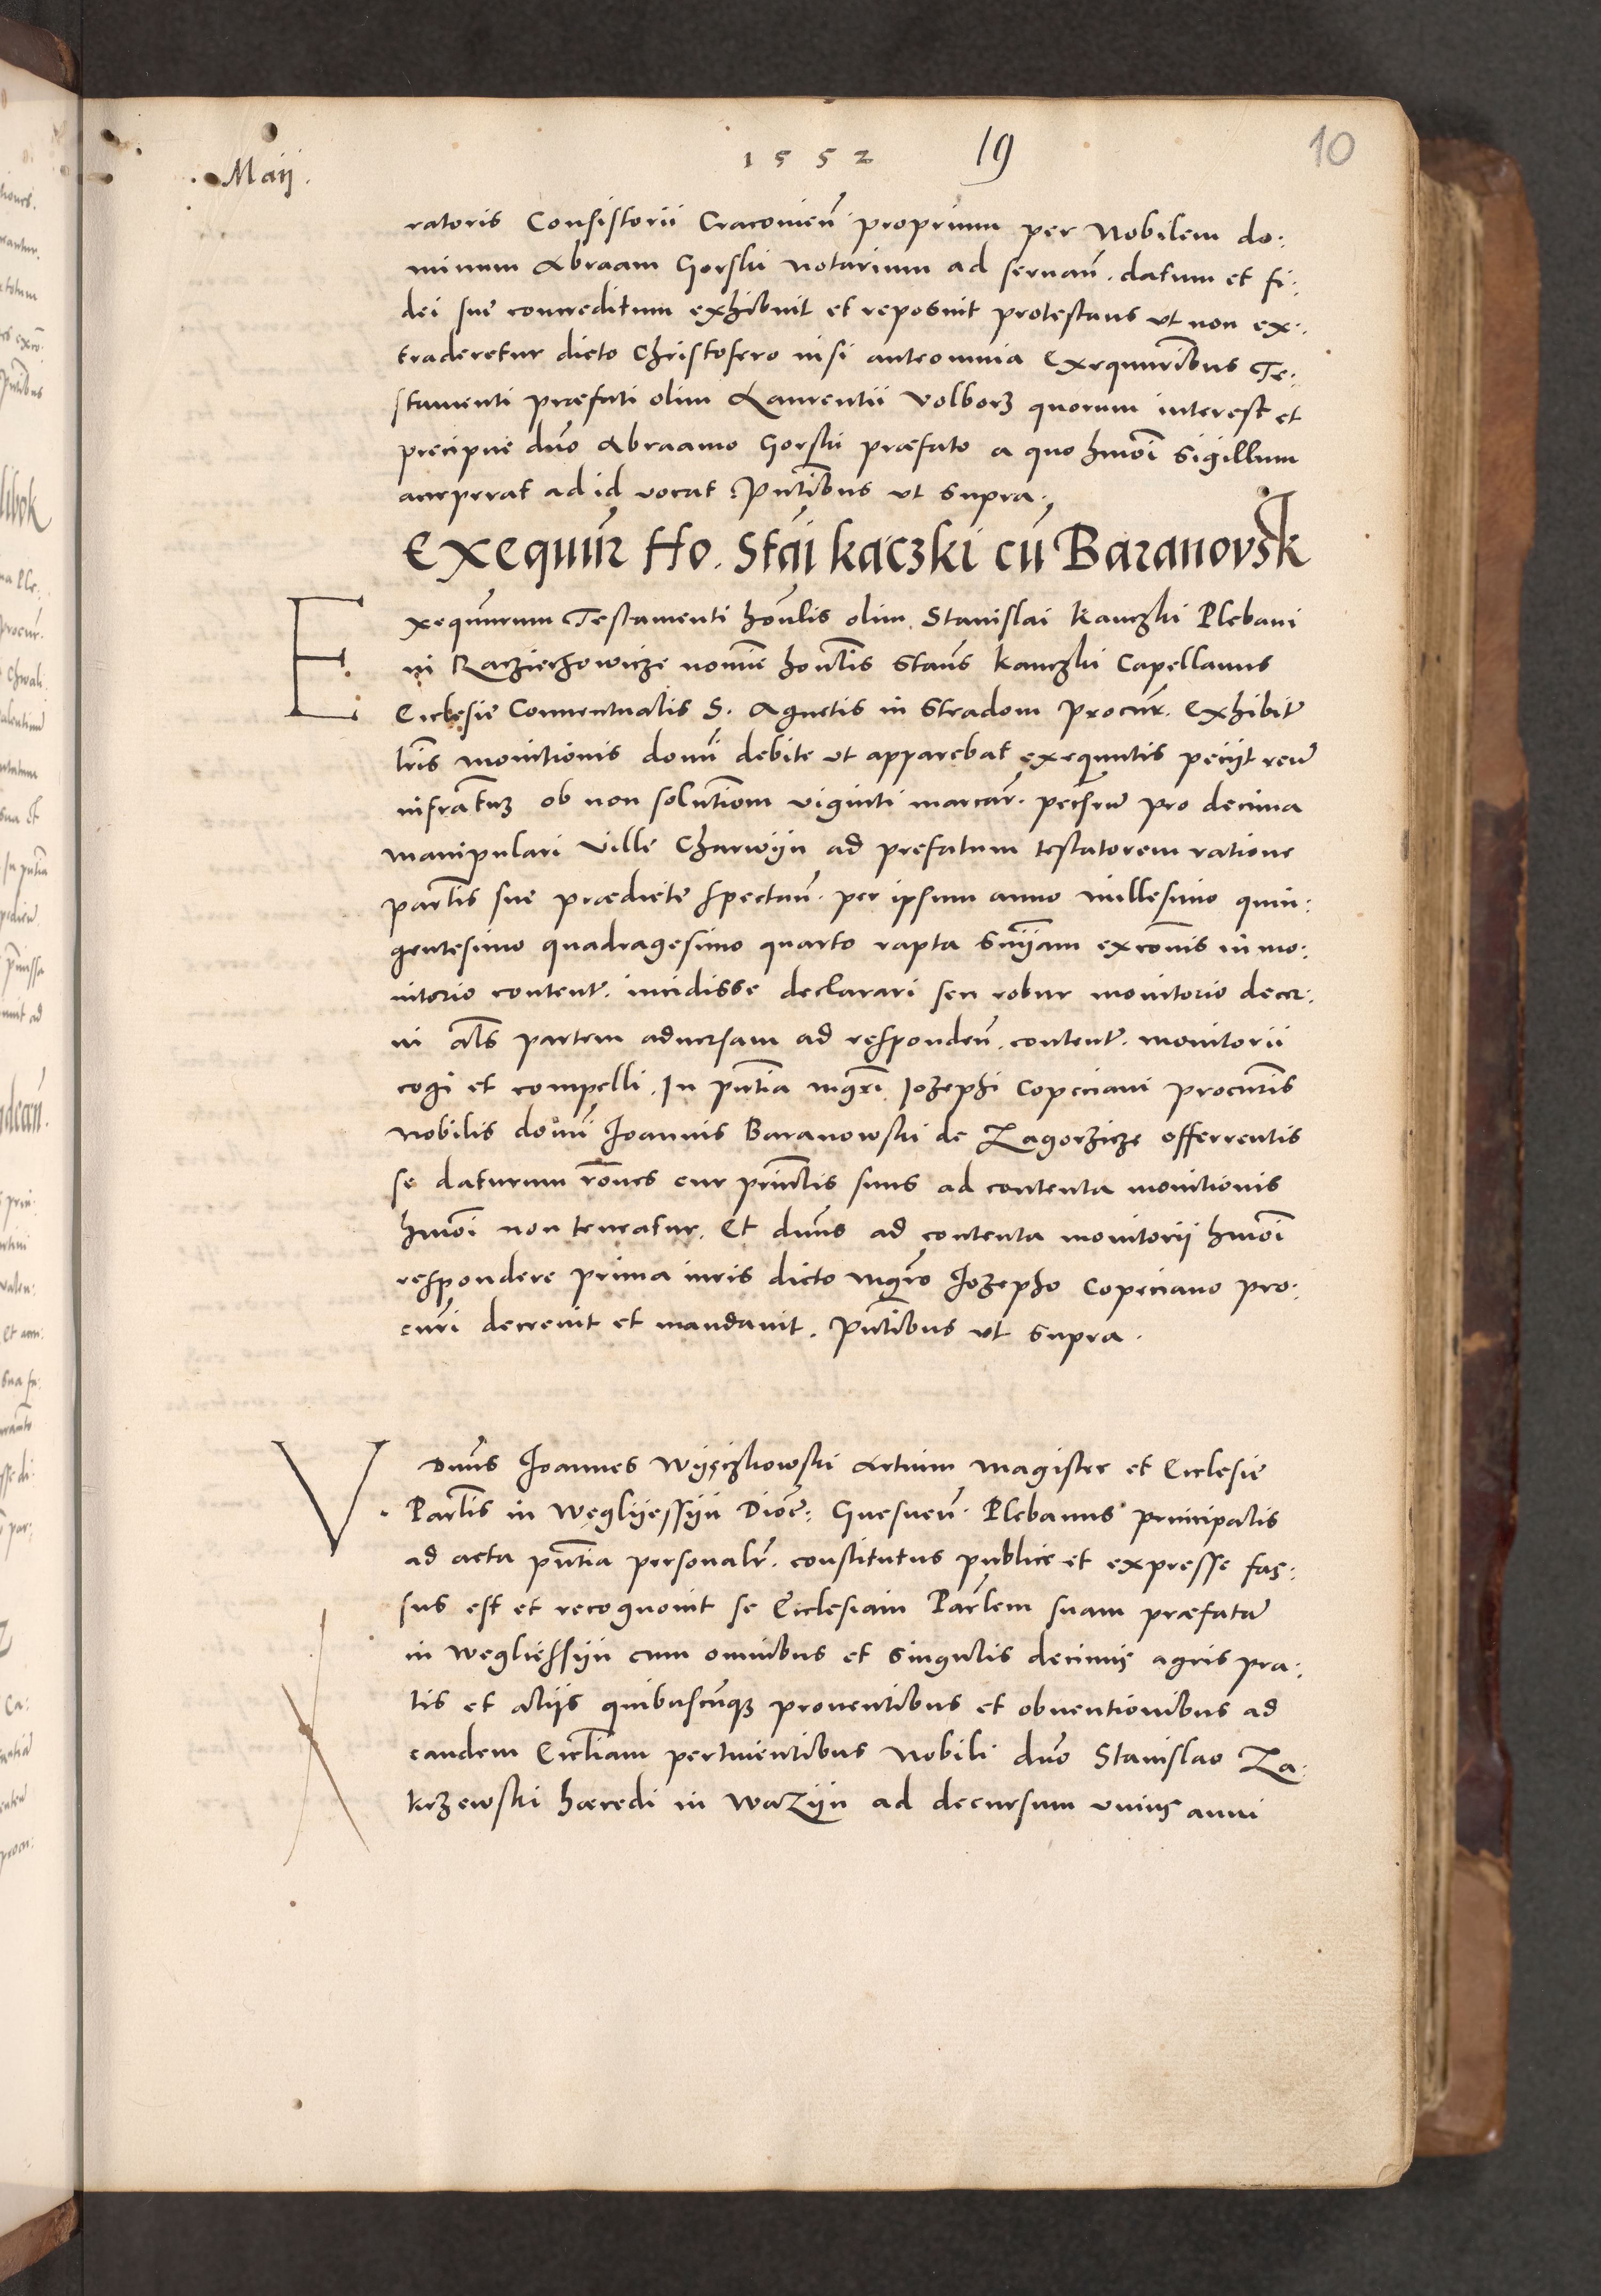 Maij.
1552 19 10
ratoris Consistorii Cracovien̄ proprium per Nobilem do:
minum Abraam Gorski notarium ad servan̄. datum et fi:
dei sue concreditum exhibuit et reposuit protestans ut non ex:
traderetur dicto Christofero nisi anteomnia Exequutoribus Te:
stamenti præfati olim Laurentii Volborz quorum interest et
precipue dn̄o Abraamo Gorski præfato a quo hmōi sigillum
acceperat ad id vocat Pn̄tibus ut supra.
Exequut̄r Ho. Stāi kaczki cū Baranovsk
Exequut̄rum Testamenti hon̄lis olim Stanislai Kaczki Plebani
in Racziechowicze nomīe hon̄lis Stan̄s Kaczki Capellanus
Ecclesie Conventualis S. Agnetis in Stradom Procur̄. Exhibit̄
lr̄is monitionis domī debite ut apparebat exequutis petijt reū
infrāctum ob non solutionem viginti marcar̄. pecūie pro decima
manipulari ville Charwijn ad prefatum testatorem ratione
partis sue prædicte spectan̄. per ipsum anno millesimo quin:
gentesimo quadragesimo quarto rapta Sn̄iam excōnis in mo:
nitorio content̄. incidisse declarari seu robur monitorio decer:
ni al̄s partem adversam ad responden̄. content̄. monitorii
cogi et compelli. In pn̄tia mgr̄i Jozephi Copeciani procur̄is
nobilis domī Joannis Baranowski de Zagorzicze offerrentis
se daturum rōnes cur prin̄lis suus ad contenta monitionis
hmōi non teneatur. Et dn̄us ad contenta monitorij hmōi
respondere prima iuris dicto mgr̄o Jozepho Copeciano pro:
cur̄i decrevit et mandavit. Pn̄tibus ut supra.
V. Dn̄us Joannes Wijęczkowski Artium magister et Ecclesie
Par̄lis in Węglijessijn Dioc̄: Gnesnen̄. Plebanus principalis
ad acta pn̄tia personalr̄. constitutus publice et expresse fas:
sus est et recognovit se Ecclesiam Par̄lem suam præfatā
in Weglieſsijn cum omnibus et singulis decimis agris pra:
tis et alijs quibuscunq proventibus et obventionibus ad
eandem Eccl̄iam pertinentibus Nobili dn̄o Stanislao Za:
krzewski hæredi in Wazijn ad decursum unius anni